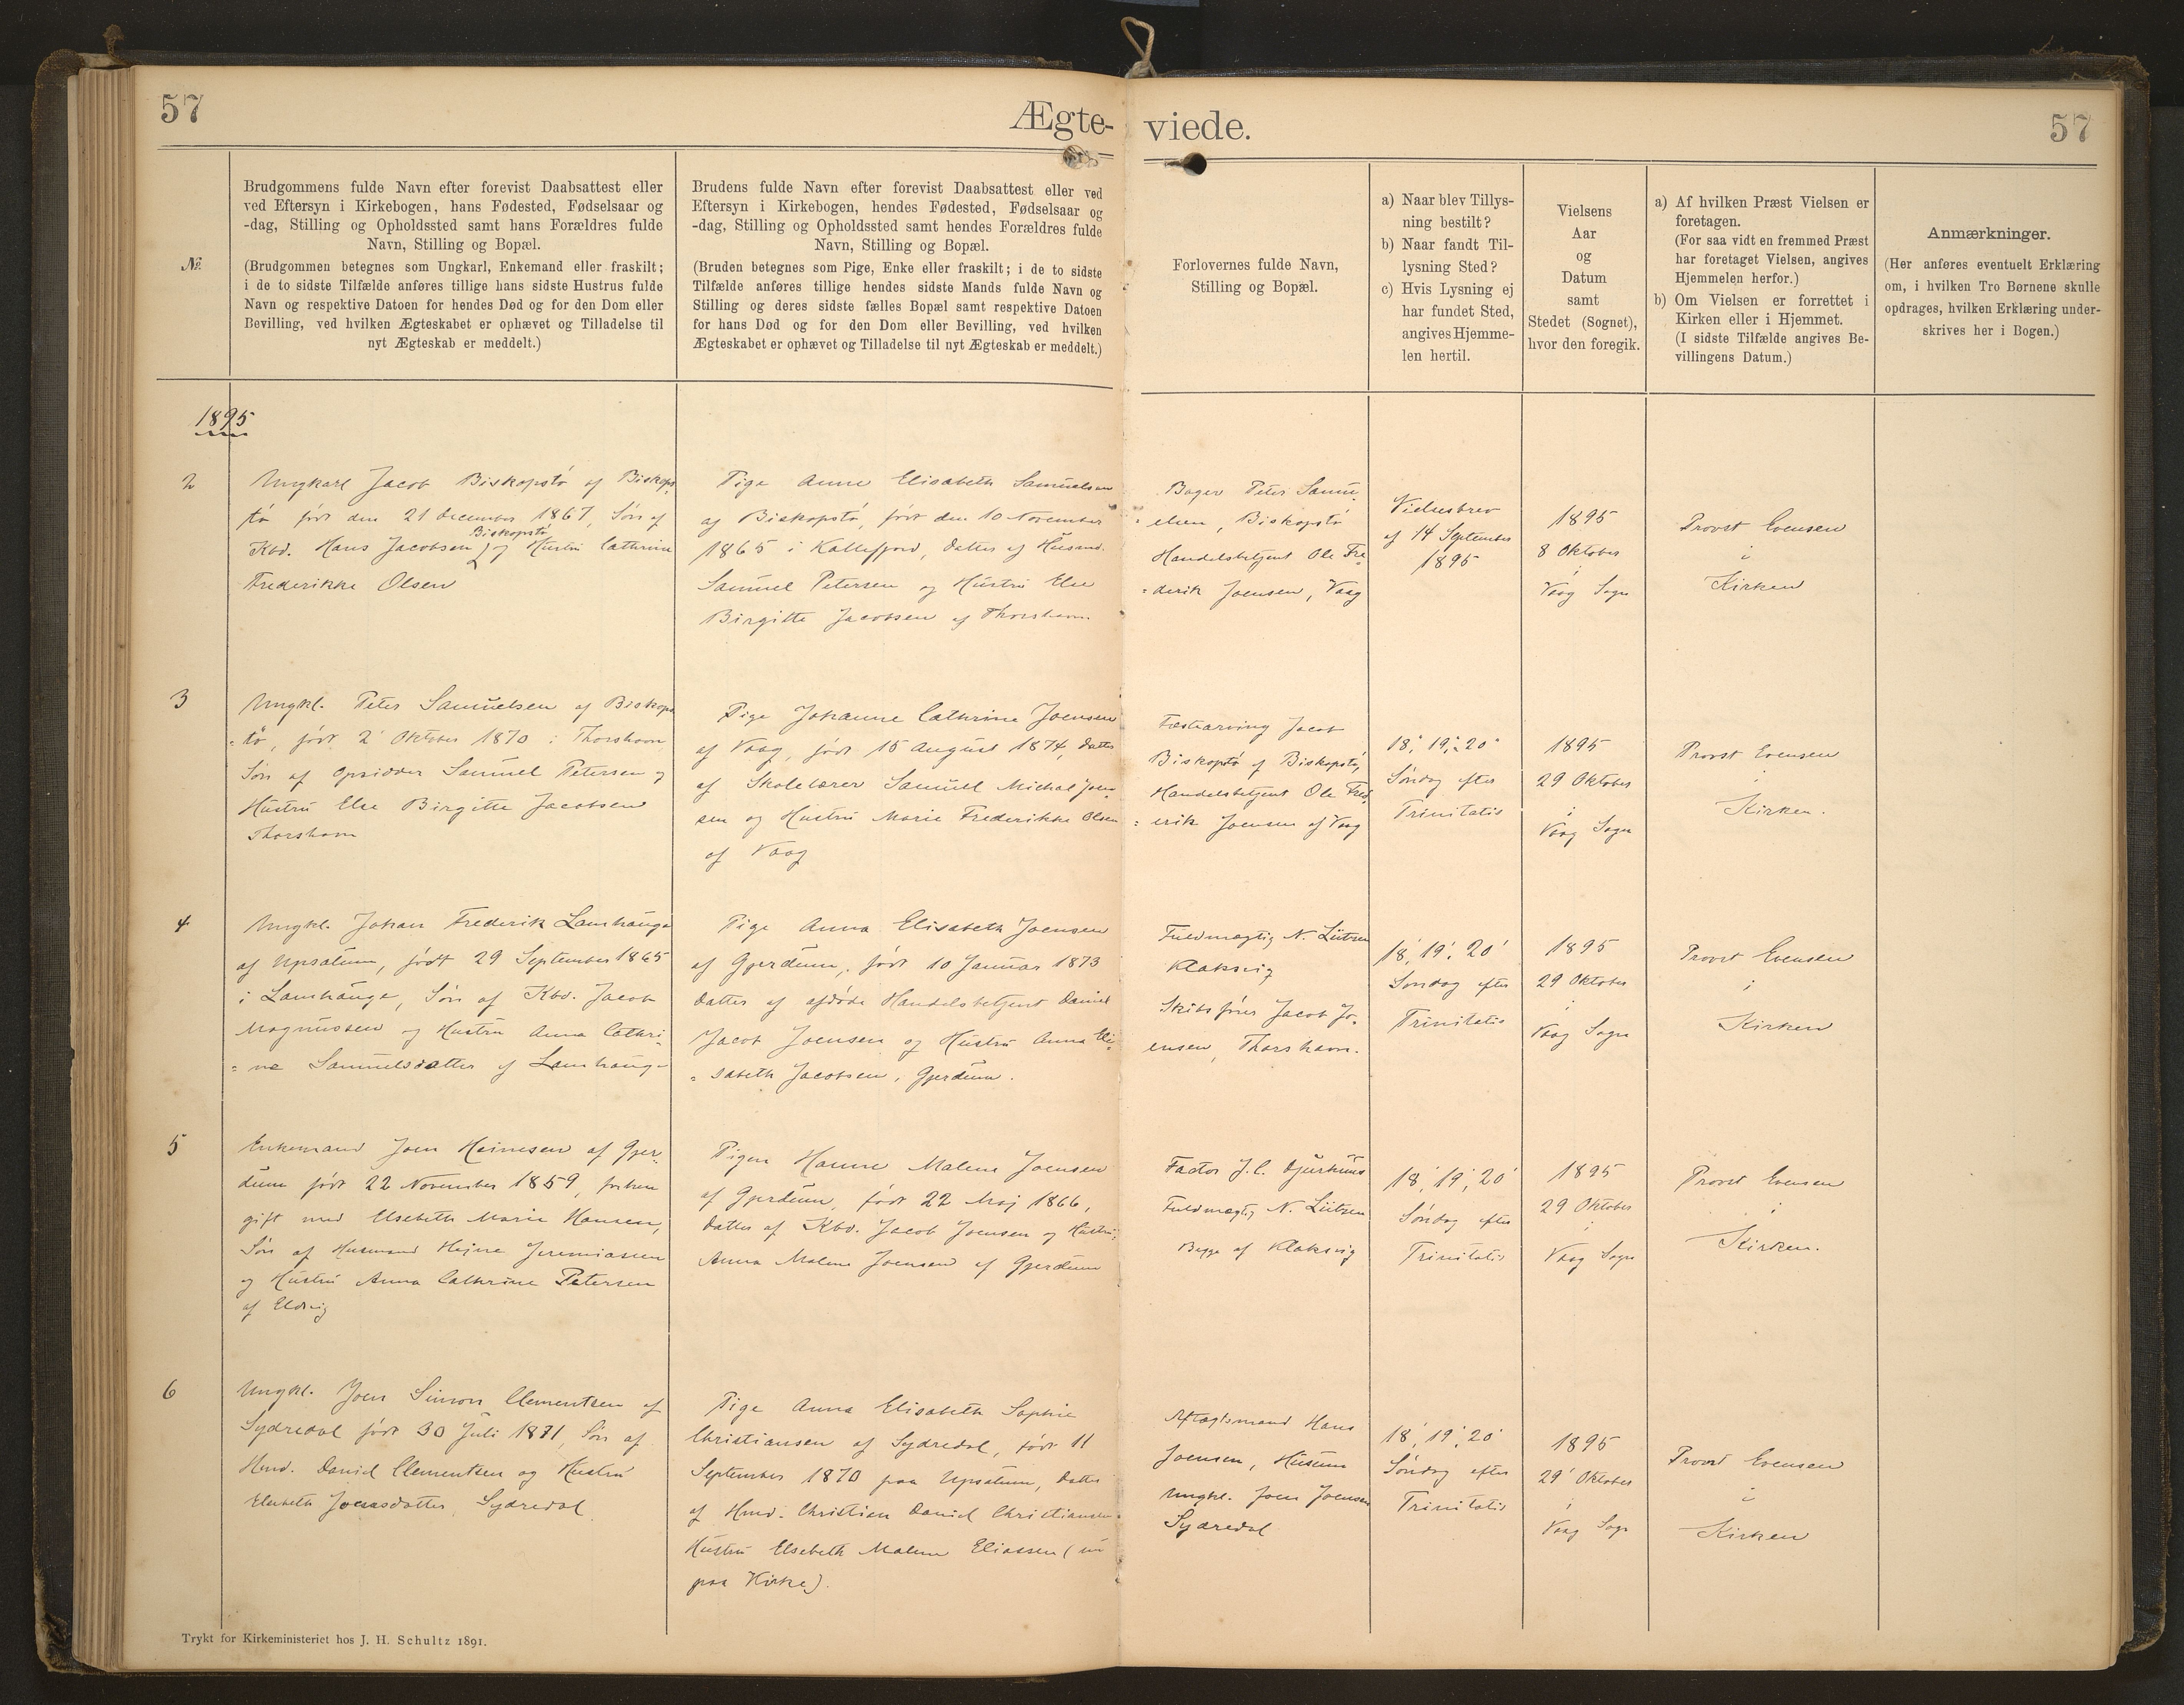 57
Ægte-
viede.
57
№
Brudgommens fulde Navn efter forevist Daabsattest eller
ved Eftersyn i Kirkebogen, hans Fødested, Fødselsaar og
-dag, Stilling og Opholdssted samt hans Forældres fulde
Navn, Stilling og Bopæl.
(Brudgommen betegnes som Ungkarl, Enkemand eller fraskilt;
i de to sidste Tilfælde anføres tillige hans sidste Hustrus fulde
Navn og respektive Datoen for hendes Død og for den Dom eller
Bevilling, ved hvilken Ægteskabet er ophævet og Tilladelse til
nyt Ægteskab er meddelt.)
Brudens fulde Navn efter forevist Daabsattest eller ved
Eftersyn i Kirkebogen, hendes Fødested, Fødselsaar og
-dag, Stilling og Opholdssted samt hendes Forældres fulde
Navn, Stilling og Bopæl.
(Bruden betegnes som Pige, Enke eller fraskilt; i de to sidste
Tilfælde anføres tillige hendes sidste Mands fulde Navn og
Stilling og deres sidste fælles Bopæl samt respektive Datoen
for hans Død og for den Dom eller Bevilling, ved hvilken
Ægteskabet er ophævet og Tilladelse til nyt Ægteskab er meddelt.)
Forlovernes fulde Navn,
Stilling og Bopæl.
a) Naar blev Tillys-
ning bestilt?
b) Naar fandt Til-
lysning Sted?
c) Hvis Lysning ej
har fundet Sted,
angives Hjemme-
len hertil.
Vielsens
Aar
og
Datum
samt
Stedet (Sognet),
hvor den foregik.
a) Af hvilken Præst Vielsen er
foretagen.
(For saa vidt en fremmed Præst
har foretaget Vielsen, angives
Hjemmelen herfor.)
b) Om Vielsen er forrettet i
Kirken eller i Hjemmet.
(I sidste Tilfælde angives Be-
villingens Datum.)
Anmærkninger.
(Her anføres eventuelt Erklæring
om, i hvilken Tro Børnene skulle
opdrages, hvilken Erklæring under-
skrives her i Bogen.)
1895
2
Ungkarl Jacob Biskopstø af Biskops
tø født den 21 december 1867, Søn af
Biskopstø
Kbd. Hans Jacobsen og Hustru Cathrine
Frederikke Olsen
Pige Anne Elisabeth Samuelsen
af Biskopstø, født den 10 November
1865 i Kollefjord, datter af Husmd.
Samuel Petersen og Hustru Else
Birgitte Jacobsen af Thorshavn
Bager Peter Samu-
elsen, Biskopstø
Handelsbetjent Ole Fre-
derik Joensen, Vaag
Vielsesbrev
af 14 September
1895
1895
8 Oktober
i
Vaag Sogn
Provst Evensen
i
Kirken
3
Ungkl. Peter Samuelsen af Biskops
tø, født 2 Oktober 1870 i Thorshavn,
Søn af Opsidder Samuel Petersen og
Hustru Else Birgitte Jacobsen
Thorshavn
Pige Johanne Cathrine Joensen
af Vaag, født 15 August 1874, datter
af Skolelærer Samuel Michal Joen-
sen og Hustru Marie Frederikke Olsen
af Vaag
Festearving Jacob
Biskopstø af Biskopstø,
Handelsbetjent Ole Fred-
erik Joensen af Vaag
18', 19', 20'
Søndag efter
Trinitatis
1895
29 Oktober
i
Vaag Sogn
Provst Evensen
i
Kirken.
4
Ungkl. Johan Frederik Lamhauge
af Upsalum, født 29 September 1865
i Lamhauge, Søn af Kbd. Jacob
Magnussen og Hustru Anna Cathri-
ne Samuelsdatter af Lamhauge
Pige Anna Elisabeth Joensen
af Gjerdum, født 10 Januar 1873
Datter af afdøde Handelsbetjent Daniel
Jacob Joensen og Hustru Anna Eli-
sabeth Jacobsen, Gjerdum.
Fuldmægtig N. Lützen
Klaksvig
Skibsfører Jacob Jo-
ensen, Thorshavn.
18', 19', 20'
Søndag efter
Trinitatis
1895
29 Oktober
i
Vaag Sogn
Provst Evensen
i
Kirken
5
Enkemand Joen Heinesen af Gjer-
dum født 22 November 1859, forhen
gift med Elsebeth Marie Hansen,
Søn af Husmand Hejne Jeremiassen
og Hustru Anna Cathrine Petersen
af Eldvig
Pigen Hanne Malene Joensen
af Gjerdum, født 22 Maj 1866,
Datter af Kbd. Jacob Joensen og Hustru
Anna Malene Joensen af Gjerdum
Factor J.C. Djurhuus
Fuldmægtig N. Lützen
Begge af Klaksvig
18', 19', 20'
Søndag efter
Trinitatis
1895
29 Oktober
i
Vaag Sogn
Provst Evensen
i
Kirken.
6
Ungkl. Joen Simon Clementsen af
Sydredal født 30 Juli 1871, Søn af
Hmd. Daniel Clementsen og Hustru
Elsebeth Joensdatter, Sydredal
Pige Anna Elisabeth Sophie
Christiansen af Sydredal, født 11
September 1870 paa Upsalum, Datter
af Hmd. Christian Daniel Christiansen
Hustru Elsebeth Malene Eliassen (nu
paa Kirke).
Aftægtsmand Hans
Joensen, Husum
Ungkl. Joen Joensen
Sydredal
18', 19', 20'
Søndag efter
Trinitatis
1895
29' Oktober
i
Vaag Sogn
Provst Evensen
i
Kirken
Trykt for Kirkeministeriet hos J. H. Schultz 1891.